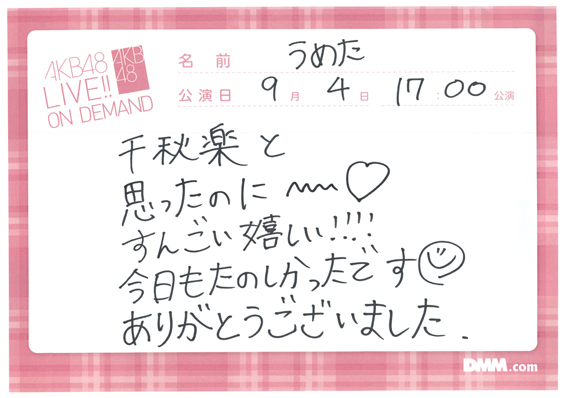 AKB48
LIVE!!
ON DEMAND
AKB
48
名前 うめた
公演日 9月4日 17:00公演
千秋楽と
思ったのに 〰♡
すんごい嬉しい!!!!
今日もたのしかったです☺
ありがとうございました.
DMM.com